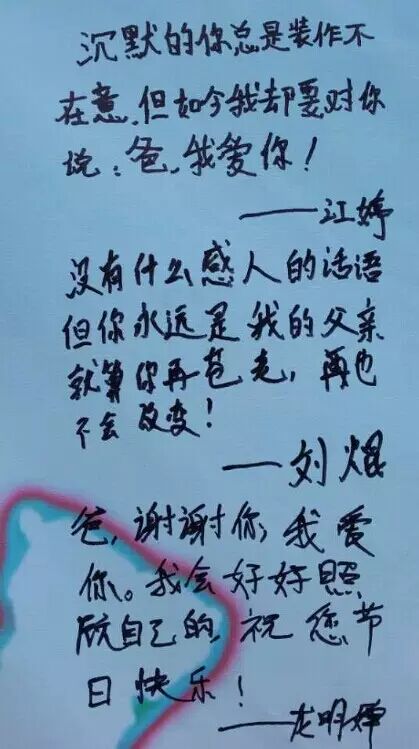 沉默的你总是装作不
在意,但如今我却要对你
说:爸,我爱你!
——江婷
没有什么感人的话语
但你永远是我的父亲
就算你再苍老,再也
不会改变!
——刘焜
爸,谢谢你,我爱
你。我会好好照
顾自己的,祝您节
日快乐!
——龙明婵